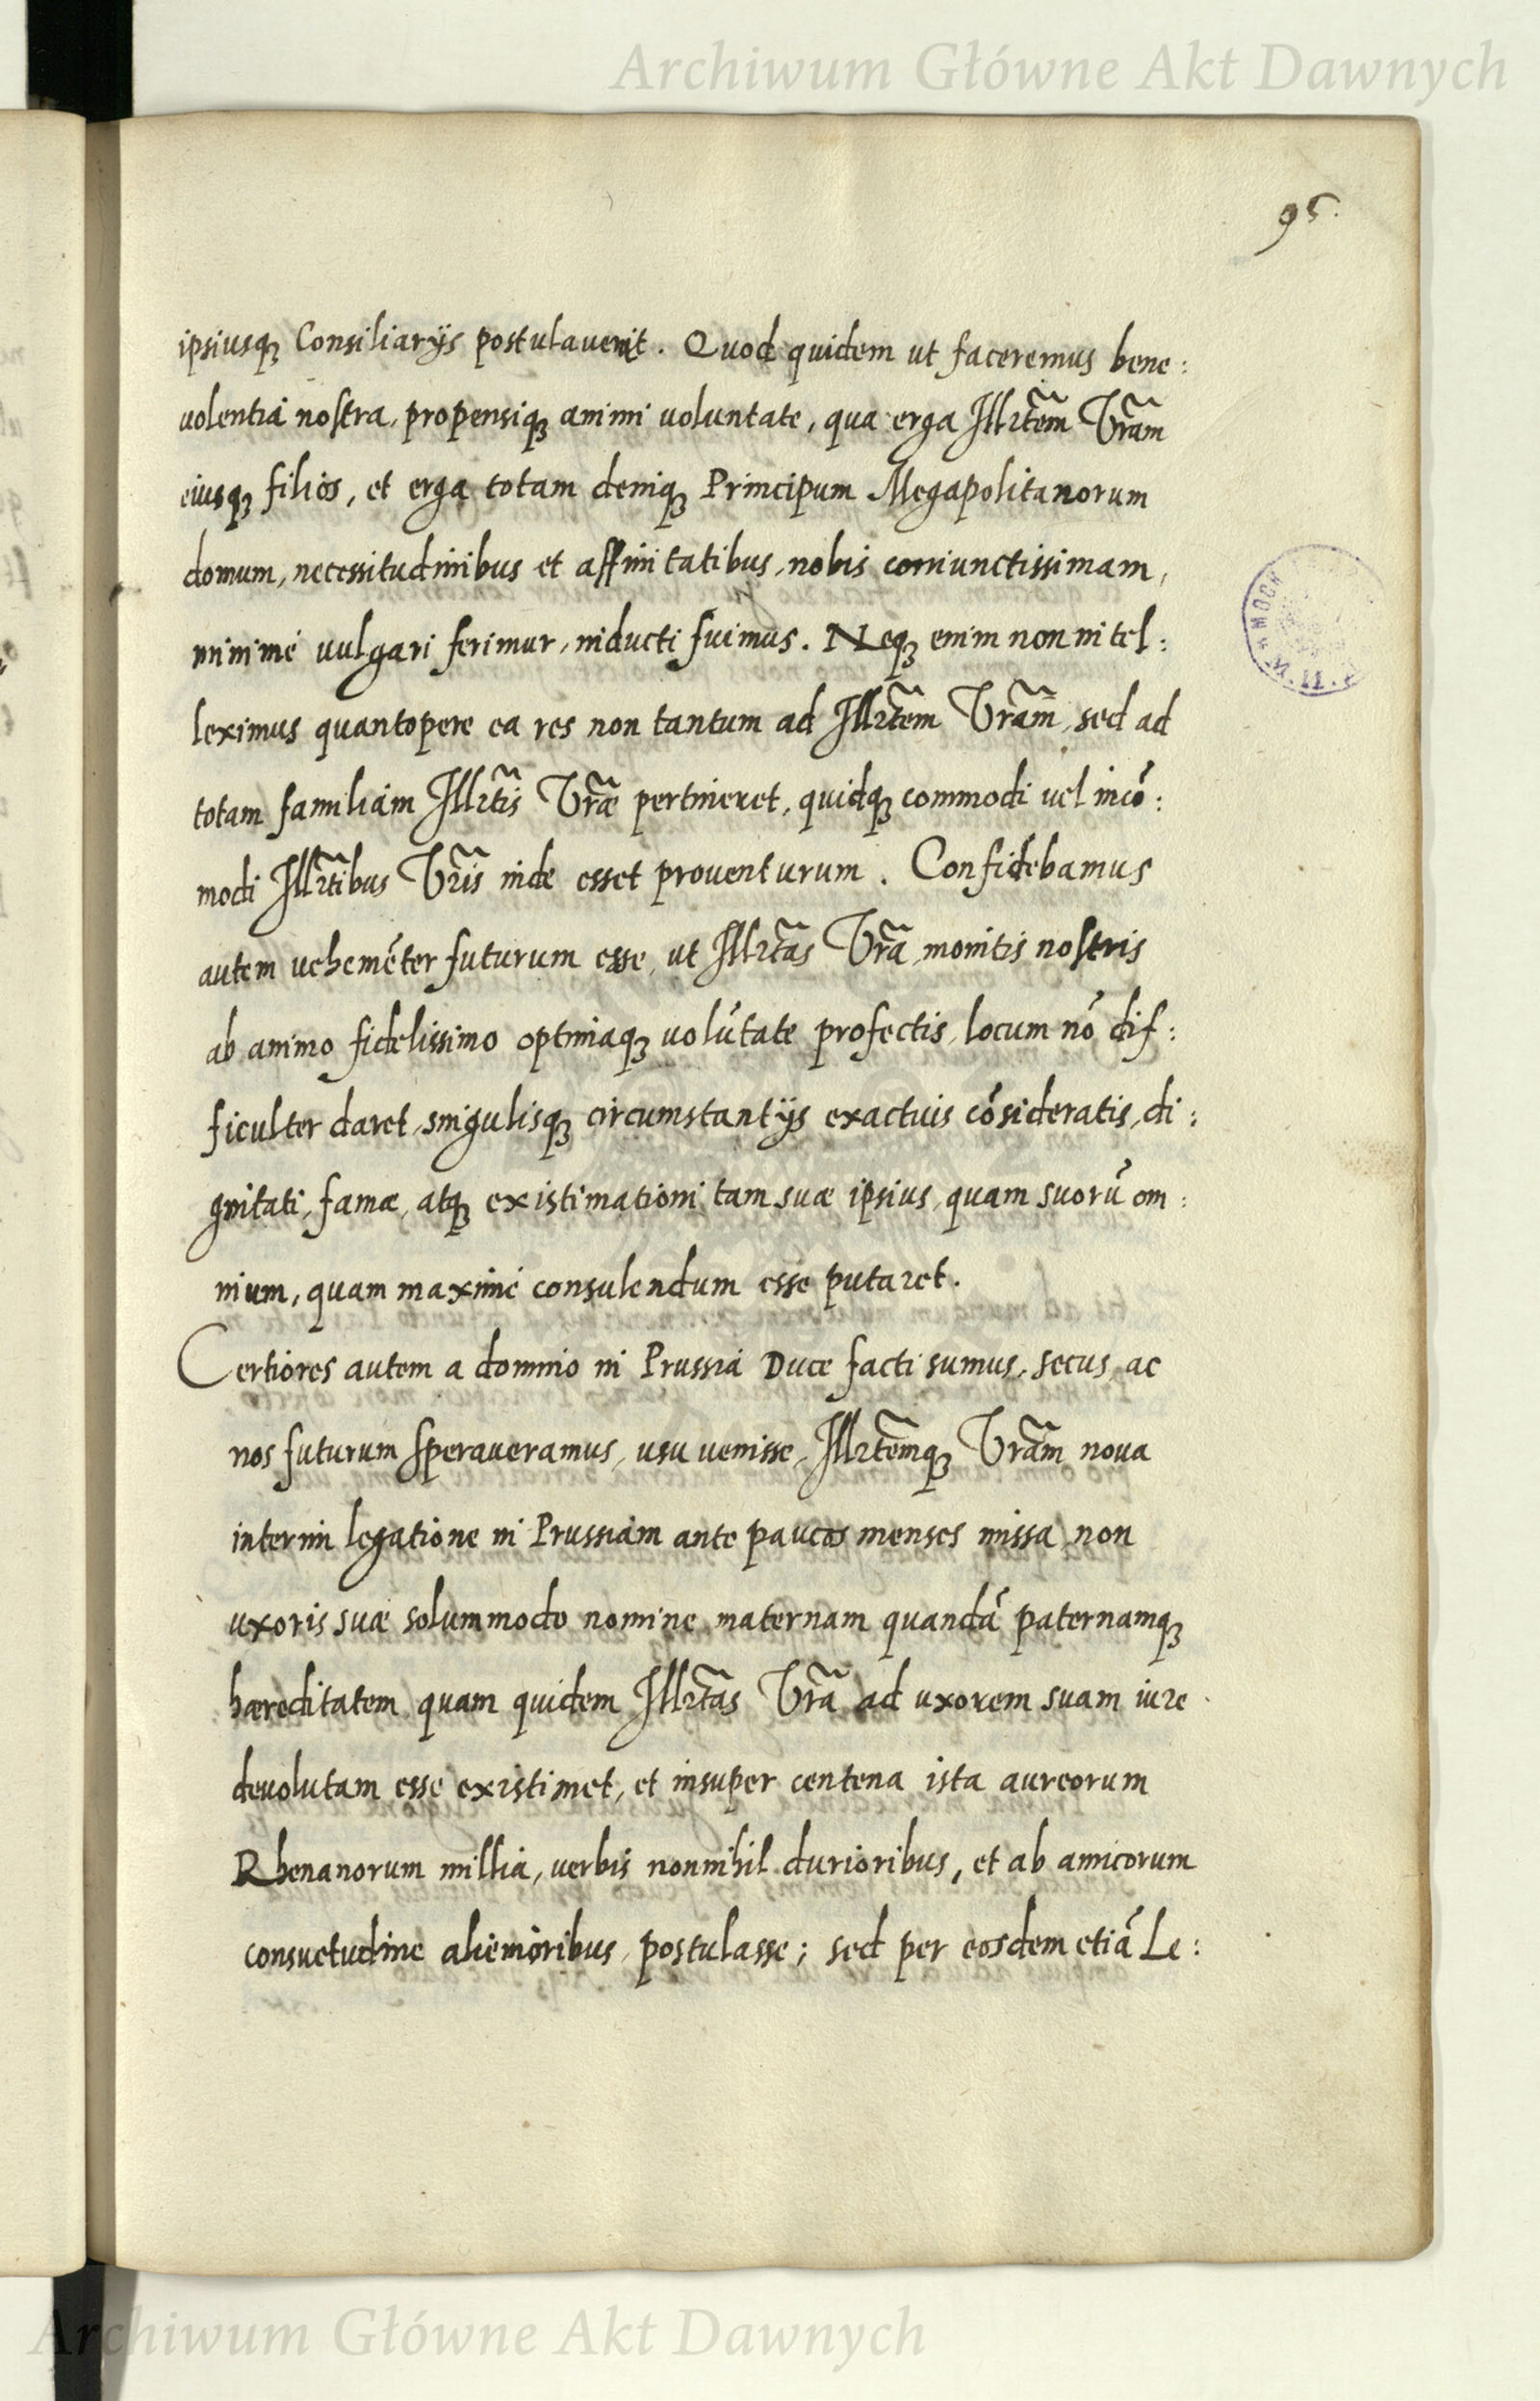 Archiwum Główne Akt Dawnych
95.
ipsiusqꝫ Consiliarijs postulaverit. Quod quidem ut faceremus bene:
volentia nostra, propensiqꝫ animi voluntate, qua erga Illr̃tem Vr̃am
eiusqꝫ filios, et erga totam deniqꝫ Principum Megapolitanorum
domum, necessitudinibus et affinitatibus, nobis coniunctissimam,
minimè vulgari ferimur, inducti fuimus. Neqꝫ enim non intel:
leximus quantopere ea res non tantum ad Illr̃tem Vr̃am, sed ad
totam familiam Illr̃tis Vr̃æ pertineret, quidqꝫ commodi vel incō:
modi Illr̃tibus Vr̃is inde esset proventurum. Confidebamus
autem vehemēter futurum esse, ut Illr̃tas Vr̃a, monitis nostris
ab animo fidelissimo optimaqꝫ volūtate profectis, locum nō dif:
ficulter daret, singulisqꝫ circumstantijs exactius cōsideratis, di:
gnitati, famæ, atqꝫ existimationi tam suæ ipsius, quam suorū om:
nium, quam maximè consulendum esse putaret.
Certiores autem a domino in Prussia Duce facti sumus, secus, ac
nos futurum speraveramus, usu venisse, Illr̃temqꝫ Vr̃am nova
interim legatione in Prussiam ante paucos menses missa, non
uxoris suæ solummodo nomine, maternam quandā paternamqꝫ
hæreditatem, quam quidem Illr̃tas Vr̃a ad uxorem suam iure
devolutam esse existimet, et insuper centena ista aureorum
Rhenanorum millia, verbis nonnihil durioribus, et ab amicorum
consuetudine alienioribus, postulasse; sed per eosdem etiā Le:
Archiwum Główne Akt Dawnych